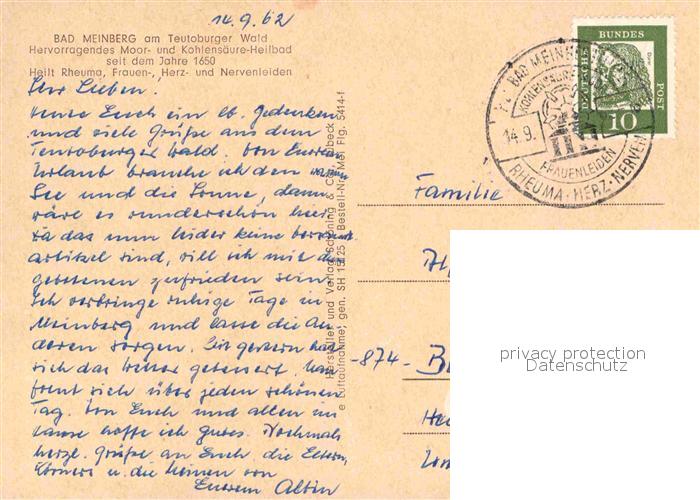 14.9.62
BAD MEINBERG am Teutoburger Wald
Hervorragendes Moor- und Kohlensäure-Heilbad
seit dem Jahre 1650
Heilt Rheuma, Frauen-, Herz- und Nervenleiden
Ihr Lieben.
Heute Euch ein lb. Gedenken
und viele Grüße aus dem
Teutoburger Wald. Von Eurem
Urlaub brauche ich den
See und die Sonne, dann
wäre es wunderschön hier.
Da das nun leider keine
artikel sind, will ich mit dem
gebotenen zufrieden sein.
Ich verbringe ruhige Tage in
Meinberg und lasse die An-
deren sorgen. Seit gestern hat
sich das Wetter gebessert. Man
freut sich über jeden schönen
Tag. Von Euch und allen im
Hause hoffe ich gutes. Nochmals
herzl. Grüße an Euch, die Eltern,
u. die Kleinen von
Eurem Albin
Hersteller und Verlag Schöning & Co., Lübeck
Luftaufnahme, gen. SH 15/25 Bestell-Nr. Mei Flg. 5414-f
BAD MEINBERG
14.9.
FRAUENLEIDEN
RHEUMA-HERZ-NERVEN
DEUTSCHE BUNDES POST
10
Familie
-874-
privacy protection
Datenschutz